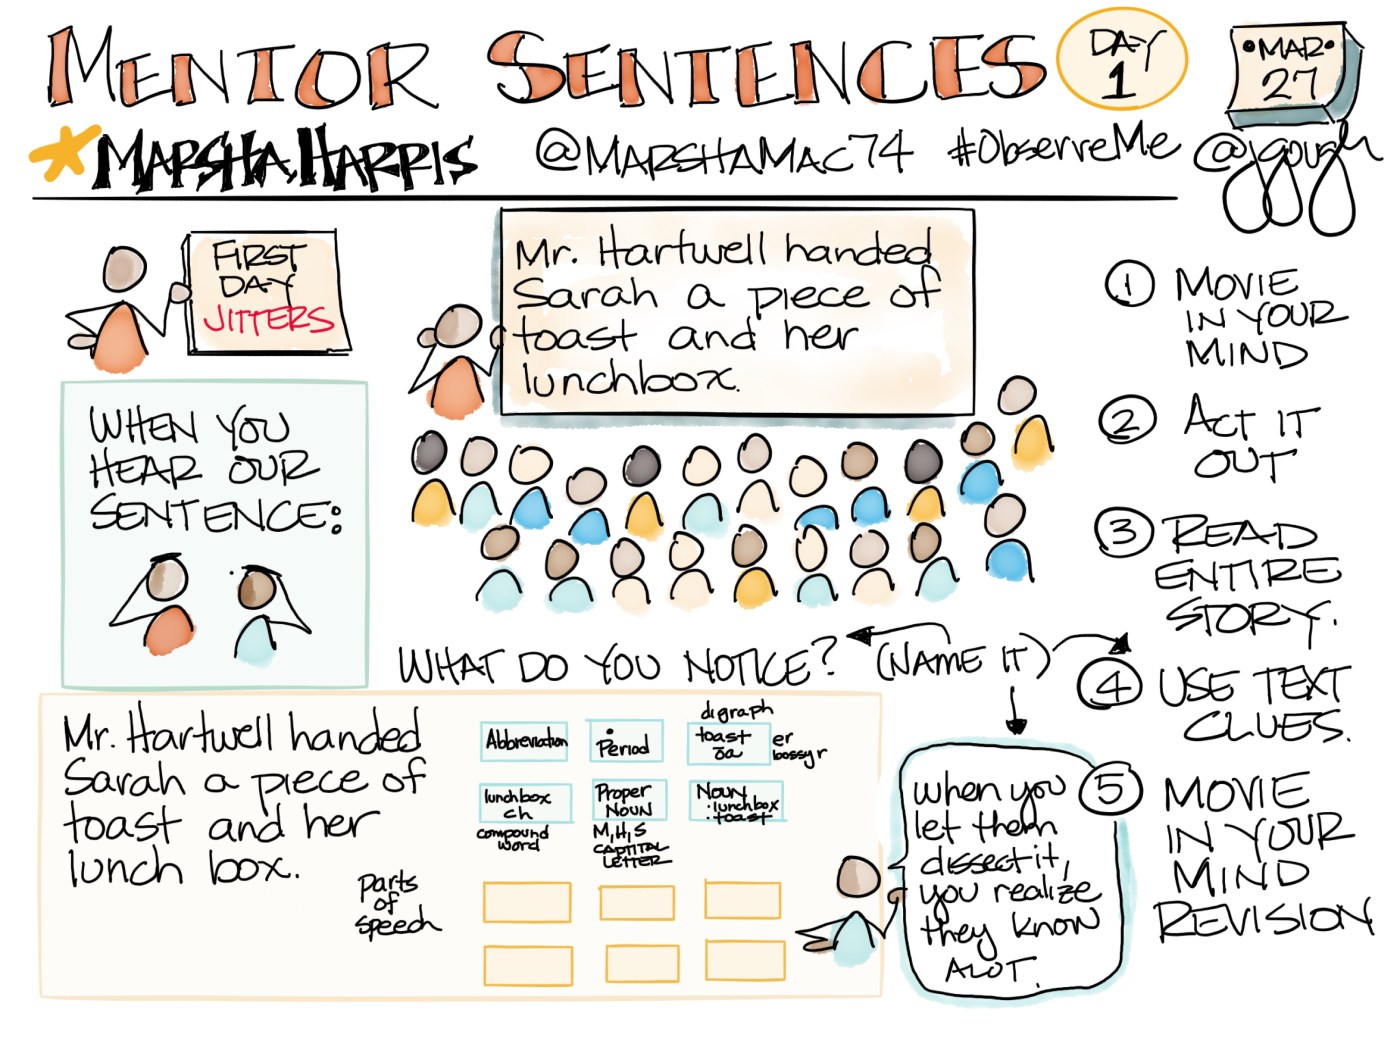 MENTOR SENTENCES
DAY
1
MAR
27
MARSHA HARRIS
@MARSHAMAC74 #ObserveMe
@jgough
FIRST
DAY
JITTERS
Mr. Hartwell handed
Sarah a piece of
toast and her
lunchbox.
WHEN YOU
HEAR OUR
SENTENCE:
1 MOVIE
IN YOUR
MIND
2 ACT IT
OUT
3 READ
ENTIRE
STORY.
4 USE TEXT
CLUES.
5 MOVIE
IN YOUR
MIND
REVISION
WHAT DO YOU NOTICE? (NAME IT)
Mr. Hartwell handed
Sarah a piece of
toast and her
lunch box.
parts
of
speech
Abbreviation
Period
digraph
toast
ōa
er
bossy r
lunchbox
ch
compound
word
Proper
NOUN
M, H, S
CAPTITAL
LETTER
NOUN
: lunchbox
: toast
when you
let them
dissect it,
you realize
they know
ALOT.